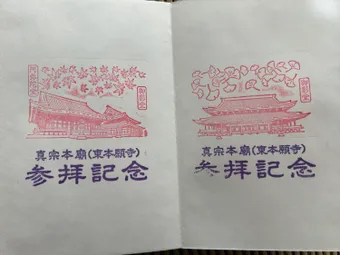 阿弥陀堂
真宗本廟(東本願寺)
参拝記念
御影堂
真宗本廟(東本願寺)
参拝記念